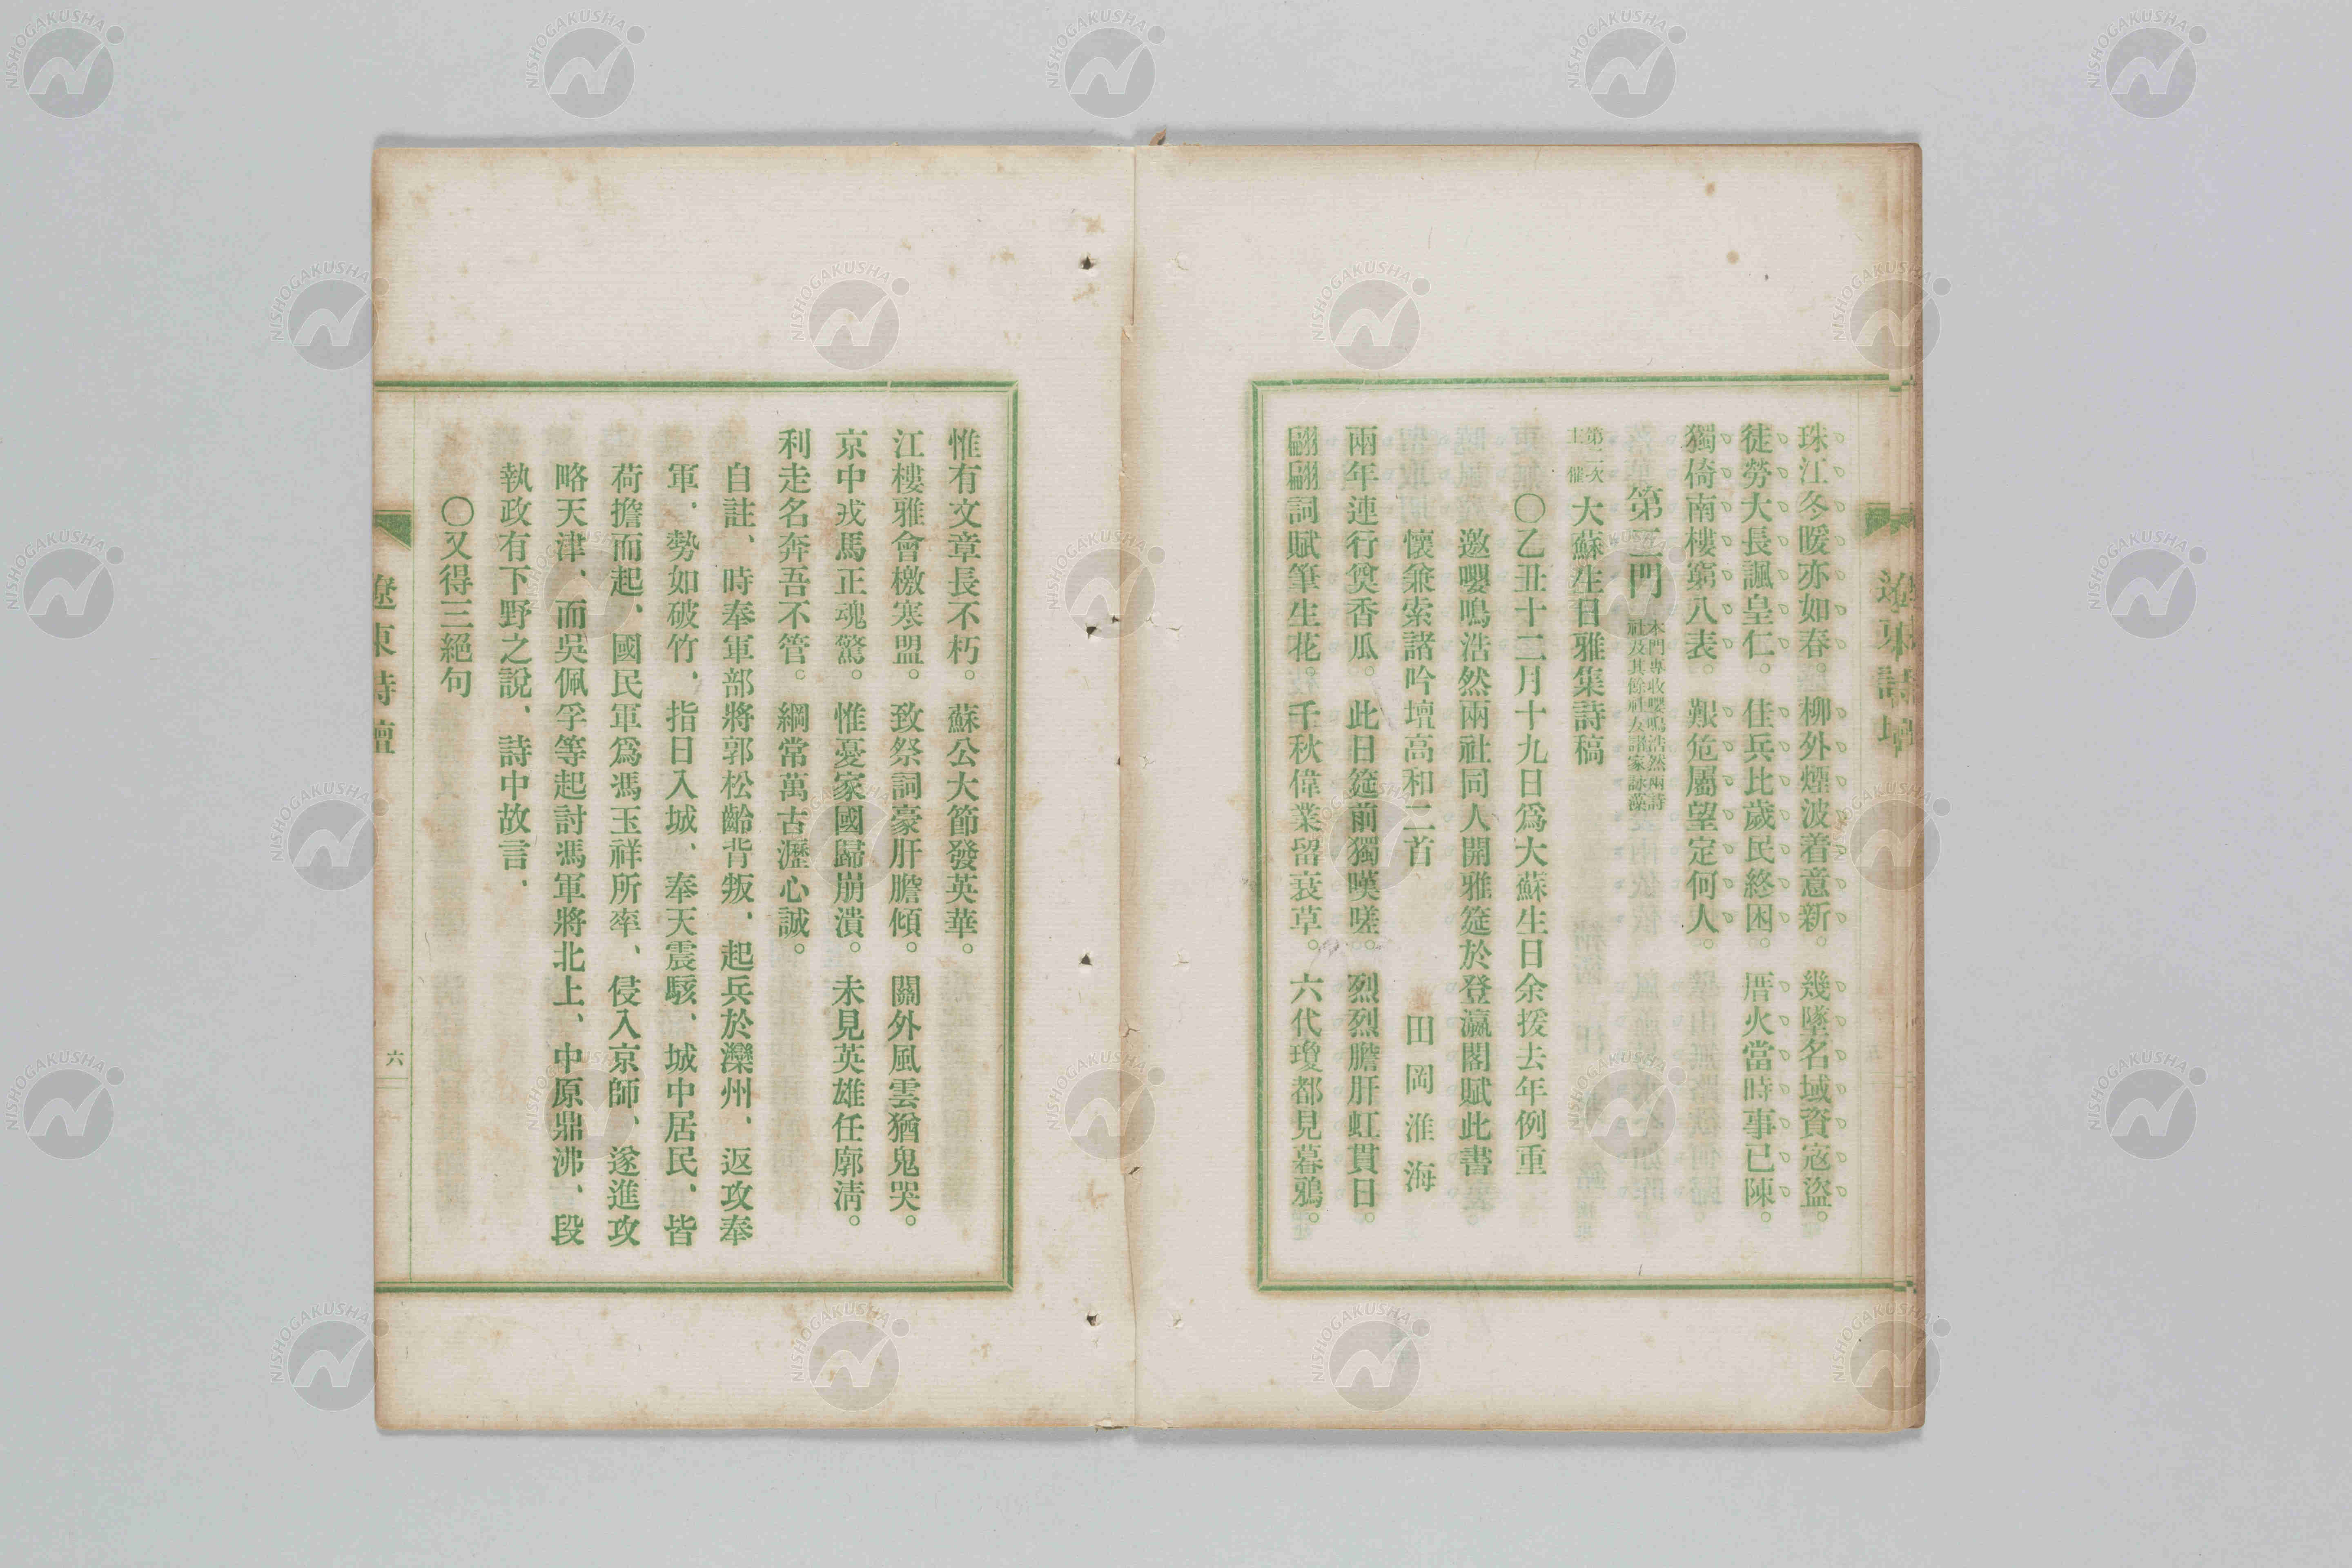 珠江冬暖亦如春。柳外煙波着意新。幾墜名域資寇盜。
徒勞大長諷皇仁。佳兵比歲民終困。厝火當時事已陳。
獨倚南樓窮八表。艱危屬望定何人。
第三門 本門專收嚶鳴浩然兩詩
社及其餘社友諸家詠藻
第二次
主催 大蘇生日雅集詩稿
〇乙丑十二月十九日爲大蘇生日余援去年例重
邀嚶鳴浩然兩社同人開雅筵於登瀛閣賦此書
懷兼索諸吟壇高和二首 田岡淮海
兩年連行奠香瓜。此日筵前獨嘆嗟。烈烈膽肝虹貫日。
翩翩詞賦筆生花。千秋偉業留衰草。六代瓊都見暮鴉。
遼東詩壇
惟有文章長不朽。蘇公大節發英華。
江樓雅會檄寒盟。致祭詞豪肝膽傾。關外風雲猶鬼哭。
京中戎馬正魂驚。惟憂家國歸崩潰。未見英雄任廓淸。
利走名奔吾不管。綱常萬古瀝心誠。
自註、時奉軍部將郭松齡背叛、起兵於灤州、返攻奉
軍、勢如破竹、指日入城、奉天震駭、城中居民、皆
荷擔而起、國民軍爲馮玉祥所率、侵入京師、遂進攻
略天津、而吳佩孚等起討馮軍將北上、中原鼎沸、段
執政有下野之說、詩中故言、
〇又得三絕句
遼東詩壇
六
NISHOGAKUSHA